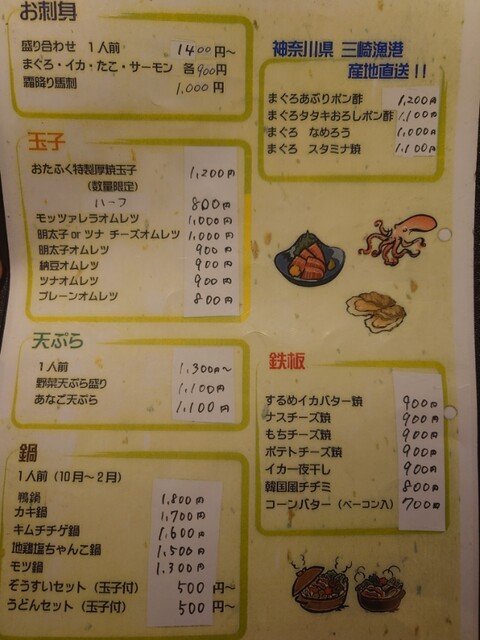 お刺身
盛り合わせ 1人前 1400円～
まぐろ・イカ・たこ・サーモン 各900円
霜降り馬刺 1,000円
神奈川県 三崎漁港
産地直送!!
まぐろあぶりポン酢 1,200円
まぐろタタキおろしポン酢 1,100円
まぐろ なめろう 1,000円
まぐろ スタミナ焼 1,100円
玉子
おたふく特製厚焼玉子 1,200円
(数量限定)
ハーフ 800円
モッツァレラオムレツ 1,000円
明太子 or ツナ チーズオムレツ 1,000円
明太子オムレツ 900円
納豆オムレツ 900円
ツナオムレツ 900円
プレーンオムレツ 800円
天ぷら
1人前 1,300円～
野菜天ぷら盛り 1,100円
あなご天ぷら 1,100円
鍋
1人前 (10月～2月)
鴨鍋 1,800円
カキ鍋 1,700円
キムチチゲ鍋 1,600円
地鶏塩ちゃんこ鍋 1,500円
モツ鍋 1,300円
ぞうすいセット (玉子付) 500円～
うどんセット (玉子付) 500円～
鉄板
するめイカバター焼 900円
ナスチーズ焼 900円
もちチーズ焼 900円
ポテトチーズ焼 900円
イカ一夜干し 900円
韓国風チヂミ 800円
コーンバター (ベーコン入) 700円